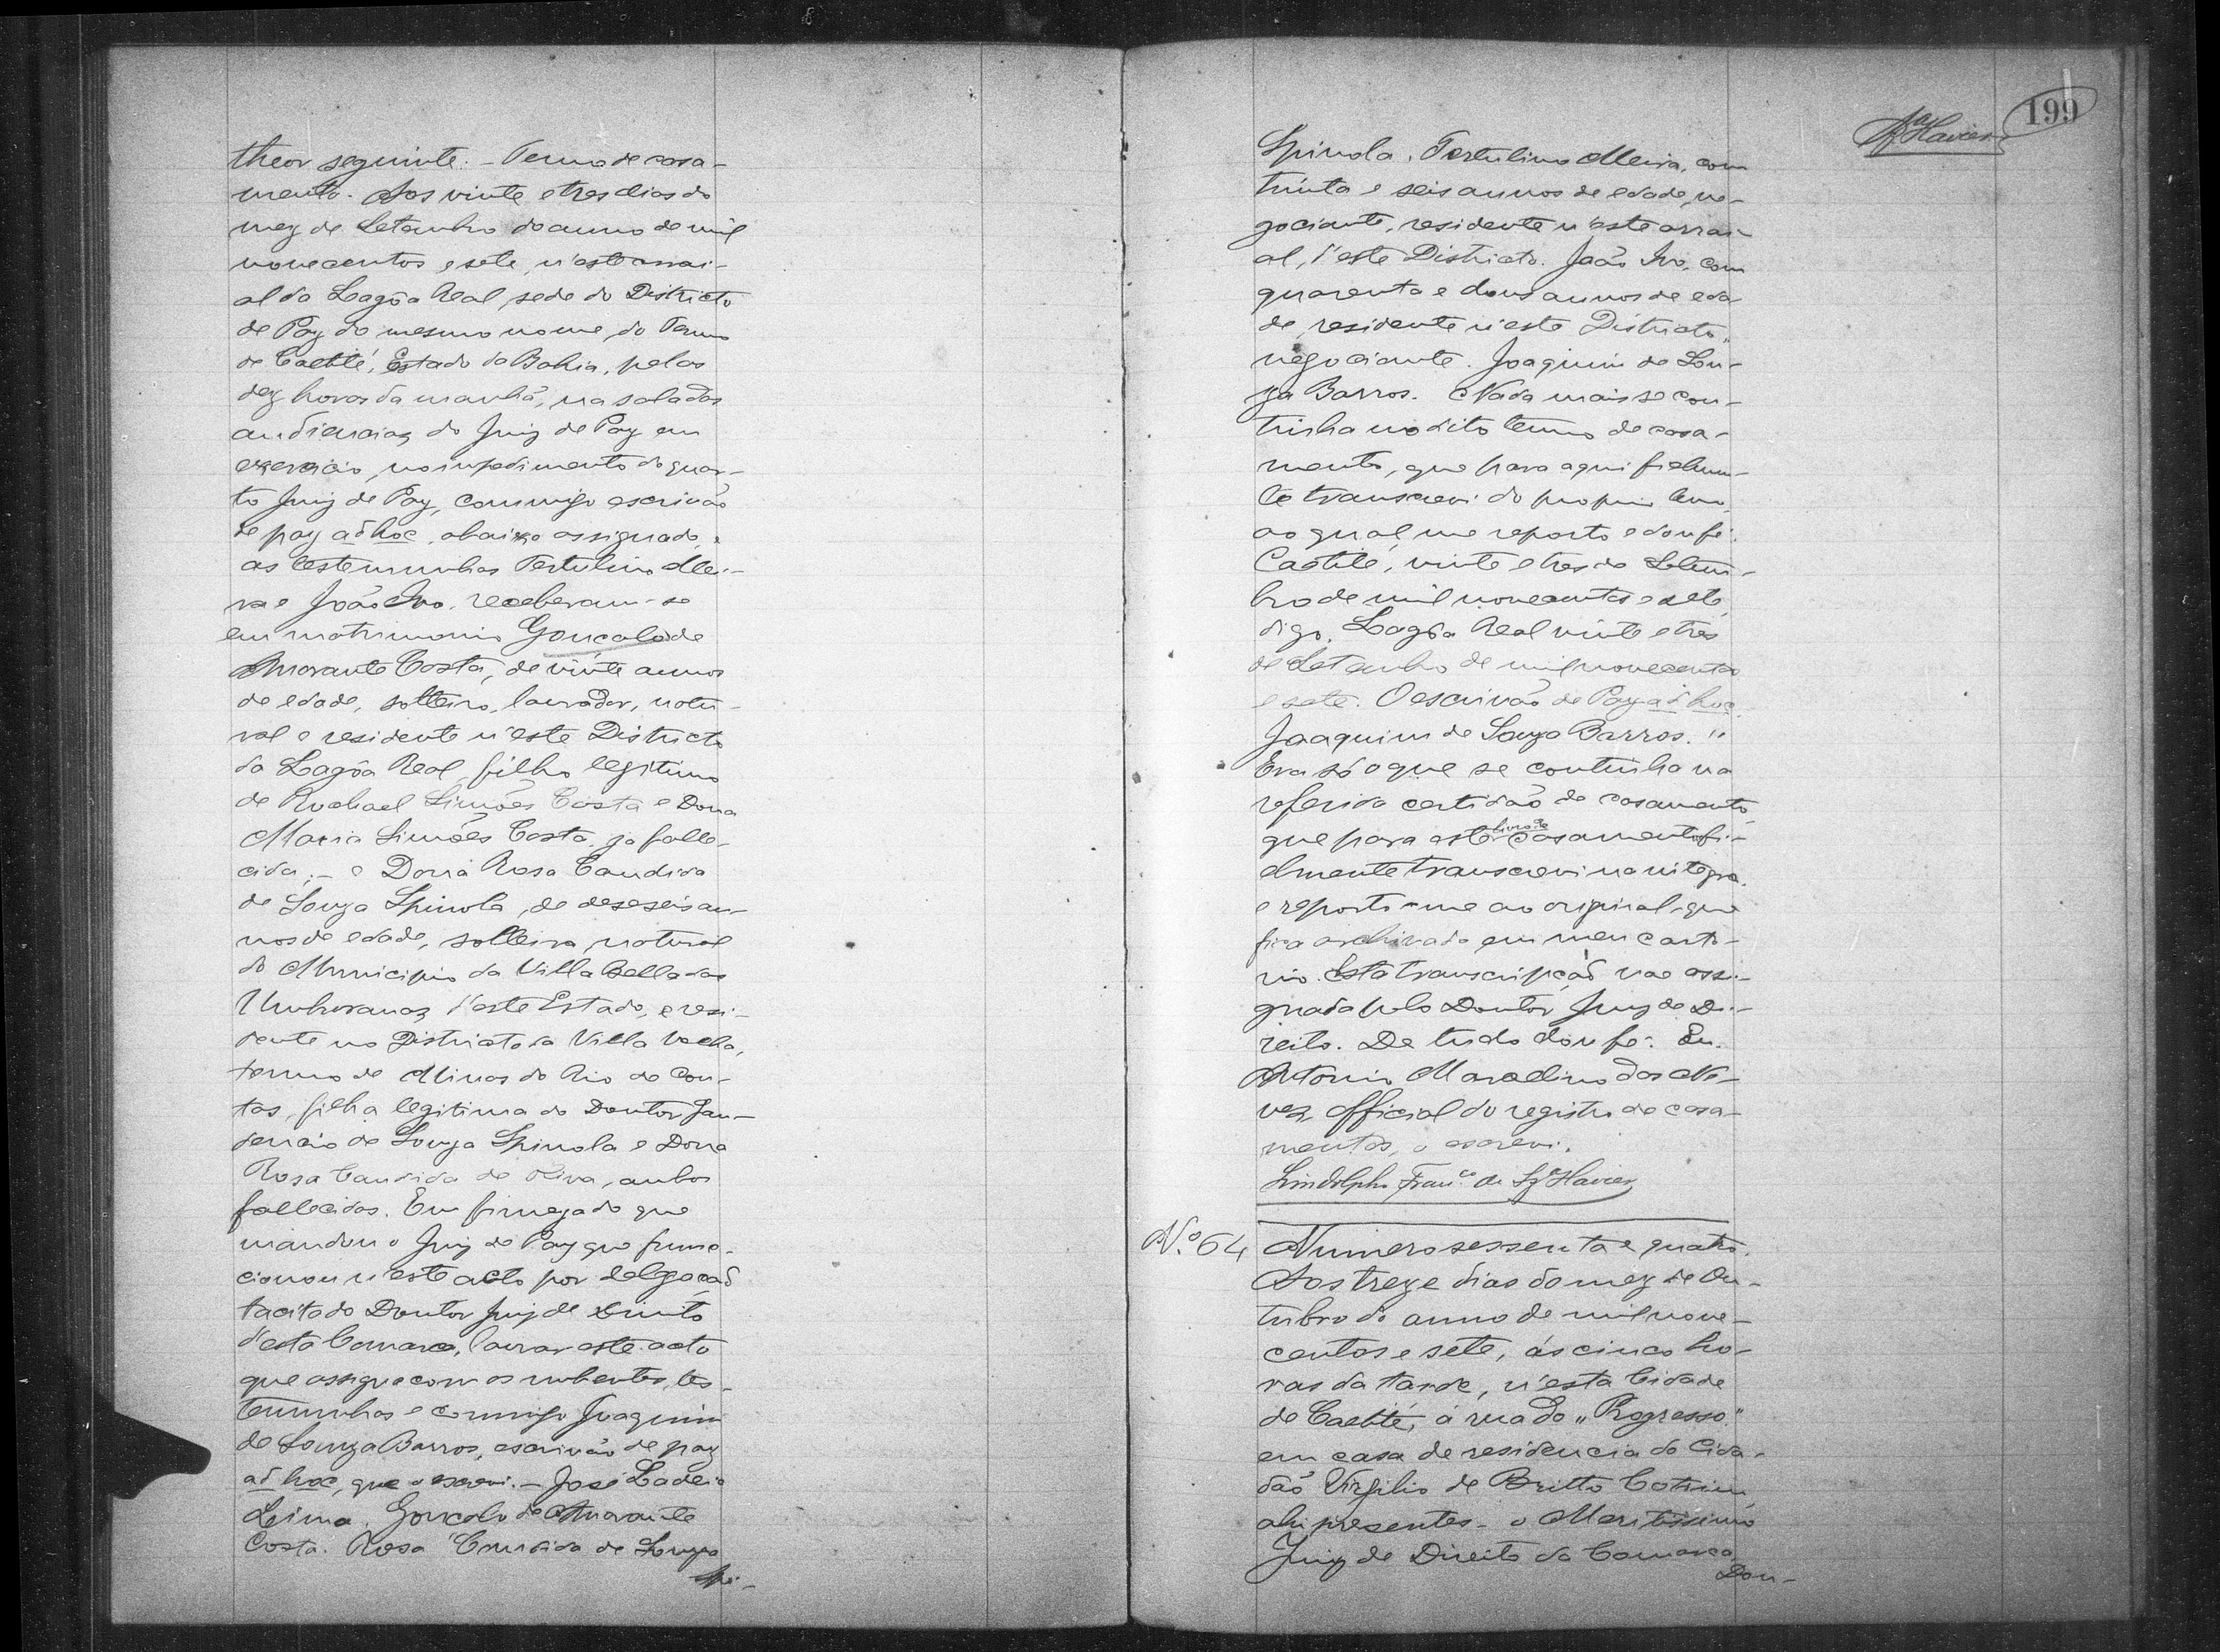 theor seguinte. - Termo de casa-
mento. Aos vinte e tres dias do
mez de Setembro do anno de mil
novecentos e sete, n'este arrai-
al da Lagôa Real, sede do Districto
de Paz do mesmo nome, do Termo
de Caetité, Estado da Bahia, pelas
dez horas da manhã, na sala das
audiencias do Juiz de Paz em
exercicio, no impedimento do quar-
to Juiz de Paz, commigo escrivão
de paz ad hoc, abaixo assignado, e
as testemunhas Tertulino Mei-
ra e João Ivo, receberam-se
em matrimonio Gonçalo de
Amorante Costa, de vinte annos
de edade, solteiro, lavrador, natu-
ral e residente n'este Districto
da Lagôa Real, filho legitimo
de Rochael Simões Costa e Dona
Maria Simões Costa, ja falle-
cida; - e Dona Rosa Candida
de Souza Spinola, de deseseis an-
nos de edade, solteira, natural
do Municipio da Villa Bella das
Umburanas, d'este Estado, e resi-
dente no Districto da Villa Velha,
termo de Minas do Rio de Con-
tas, filha legitima do Doutor Jau-
dencio de Souza Spinola e Dona
Rosa Candida de Oliva, ambos
fallecidos. Em firmeza do que
mandou o Juiz de Paz que func-
cionou n'este acto por delegação
tacita do Doutor Juiz de Direito
d'esta Comarca, lavrar este acto
que assigna com os nubentes, tes-
temunhas e commigo Joaquim
de Souza Barros, escrivão de paz
ad hoc, que o escrevi. - José Ladeia
Leima. Gonçalo de Amorante
Costa. Rosa Candida de Souza
Spi-
199
Sza Xavier
Spinola. Tertulino Meira, com
trinta e seis annos de edade, ne-
gociante, residente n'este arrai-
al, d'este Districto. João Ivo, com
quarenta e dous annos de eda-
de, residente n'este Districto,
negociante. Joaquim de Sou-
za Barros. Nada mais se con-
tinha no dito termo de casa-
mento, que para aqui fielmen-
te transcrevi do proprio termo,
ao qual me reporto e dou fé.
Caetité, vinte e tres de Setem-
bro de mil novecentos e sete,
digo, Lagôa Real vinte e tres
de Setembro de mil novecentos
e sete. O escrivão de Paz ad hoc,
Joaquim de Souza Barros. "
Era só o que se continha na
referida certidão de casamento,
que para este livro de casamentos fi-
elmente transcrevi na integra,
e reporto-me ao original que
fica archivado em meu carto-
rio. Esta transcripção vae assi-
gnada pelo Doutor Juiz de Di-
reito. De tudo dou fé. Eu,
Antonio Marcelino das Ne-
ves, official do registro de casa-
mentos, o escrevi.
Lindolpho Franco. de Sza Xavier
No. 64 Numero sessenta e quatro.
Aos treze dias do mez de Ou-
tubro do anno de mil nove-
centos e sete, ás cinco ho-
ras da tarde, n'esta Cidade
de Caetité, á rua do "Progresso"
em casa de residencia do Cida-
dão Virgilio de Britto Cotrim,
ahi presentes - o Meritissimo
Juiz de Direito da Comarca
Dou-